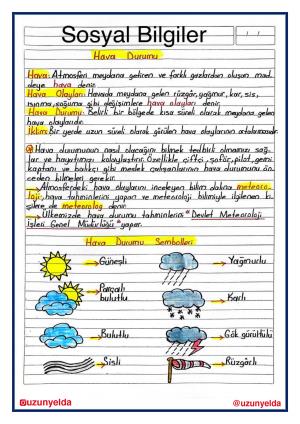 Sosyal Bilgiler
Hava Durumu
Hava: Atmosferi meydana getiren ve farklı gazlardan oluşan mad-
deye hava denir.
Hava Olayları: Havada meydana gelen rüzgâr, yağmur, kar, sis,
ısınma, soğuma gibi değişimlere hava olayları denir.
Hava Durumu: Belirli bir bölgede kısa süreli olarak meydana gelen
hava olaylarıdır.
İklim: Bir yerde uzun süreli olarak görülen hava olaylarının ortalamasıdır.
Hava durumunun nasıl olacağını bilmek tedbirli olmamızı sağ-
lar ve hayatımızı kolaylaştırır. Özellikle çiftçi, şoför, pilot, gemi
kaptanı ve balıkçı gibi meslek çalışanlarının hava durumunu ön-
ceden bilmeleri gerekir.
→Atmosferdeki hava olaylarını inceleyen bilim dalına meteoro-
loji, hava tahminlerini yapan ve meteoroloji bilimiyle ilgilenen ki-
şilere de meteorolog denir.
→Ülkemizde hava durumu tahminlerini "Devlet Meteoroloji
İşleri Genel Müdürlüğü" yapar.
Hava Durumu Sembolleri
→Güneşli
→Yağmurlu
→Parçalı
bulutlu
→Karlı
→Bulutlu
→Gök gürültülü
→Sisli
→Rüzgârlı
@uzunyelda
@uzunyelda